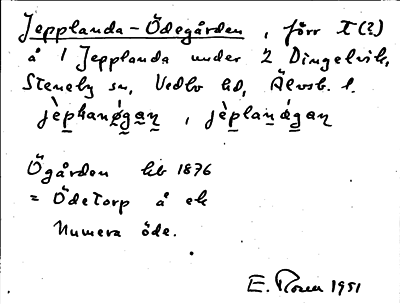 Jepplanda-Ödegården, förr T(?)
å 1 Jepplanda under 2 Dingelvik,
Steneby sn, Vedbo hd, Älvsb. l.
jèpkanǿgan, jèplanǿgan
Ögården hb 1876
= Ödetorp å ek
Numera öde.
E. Rosen 1951